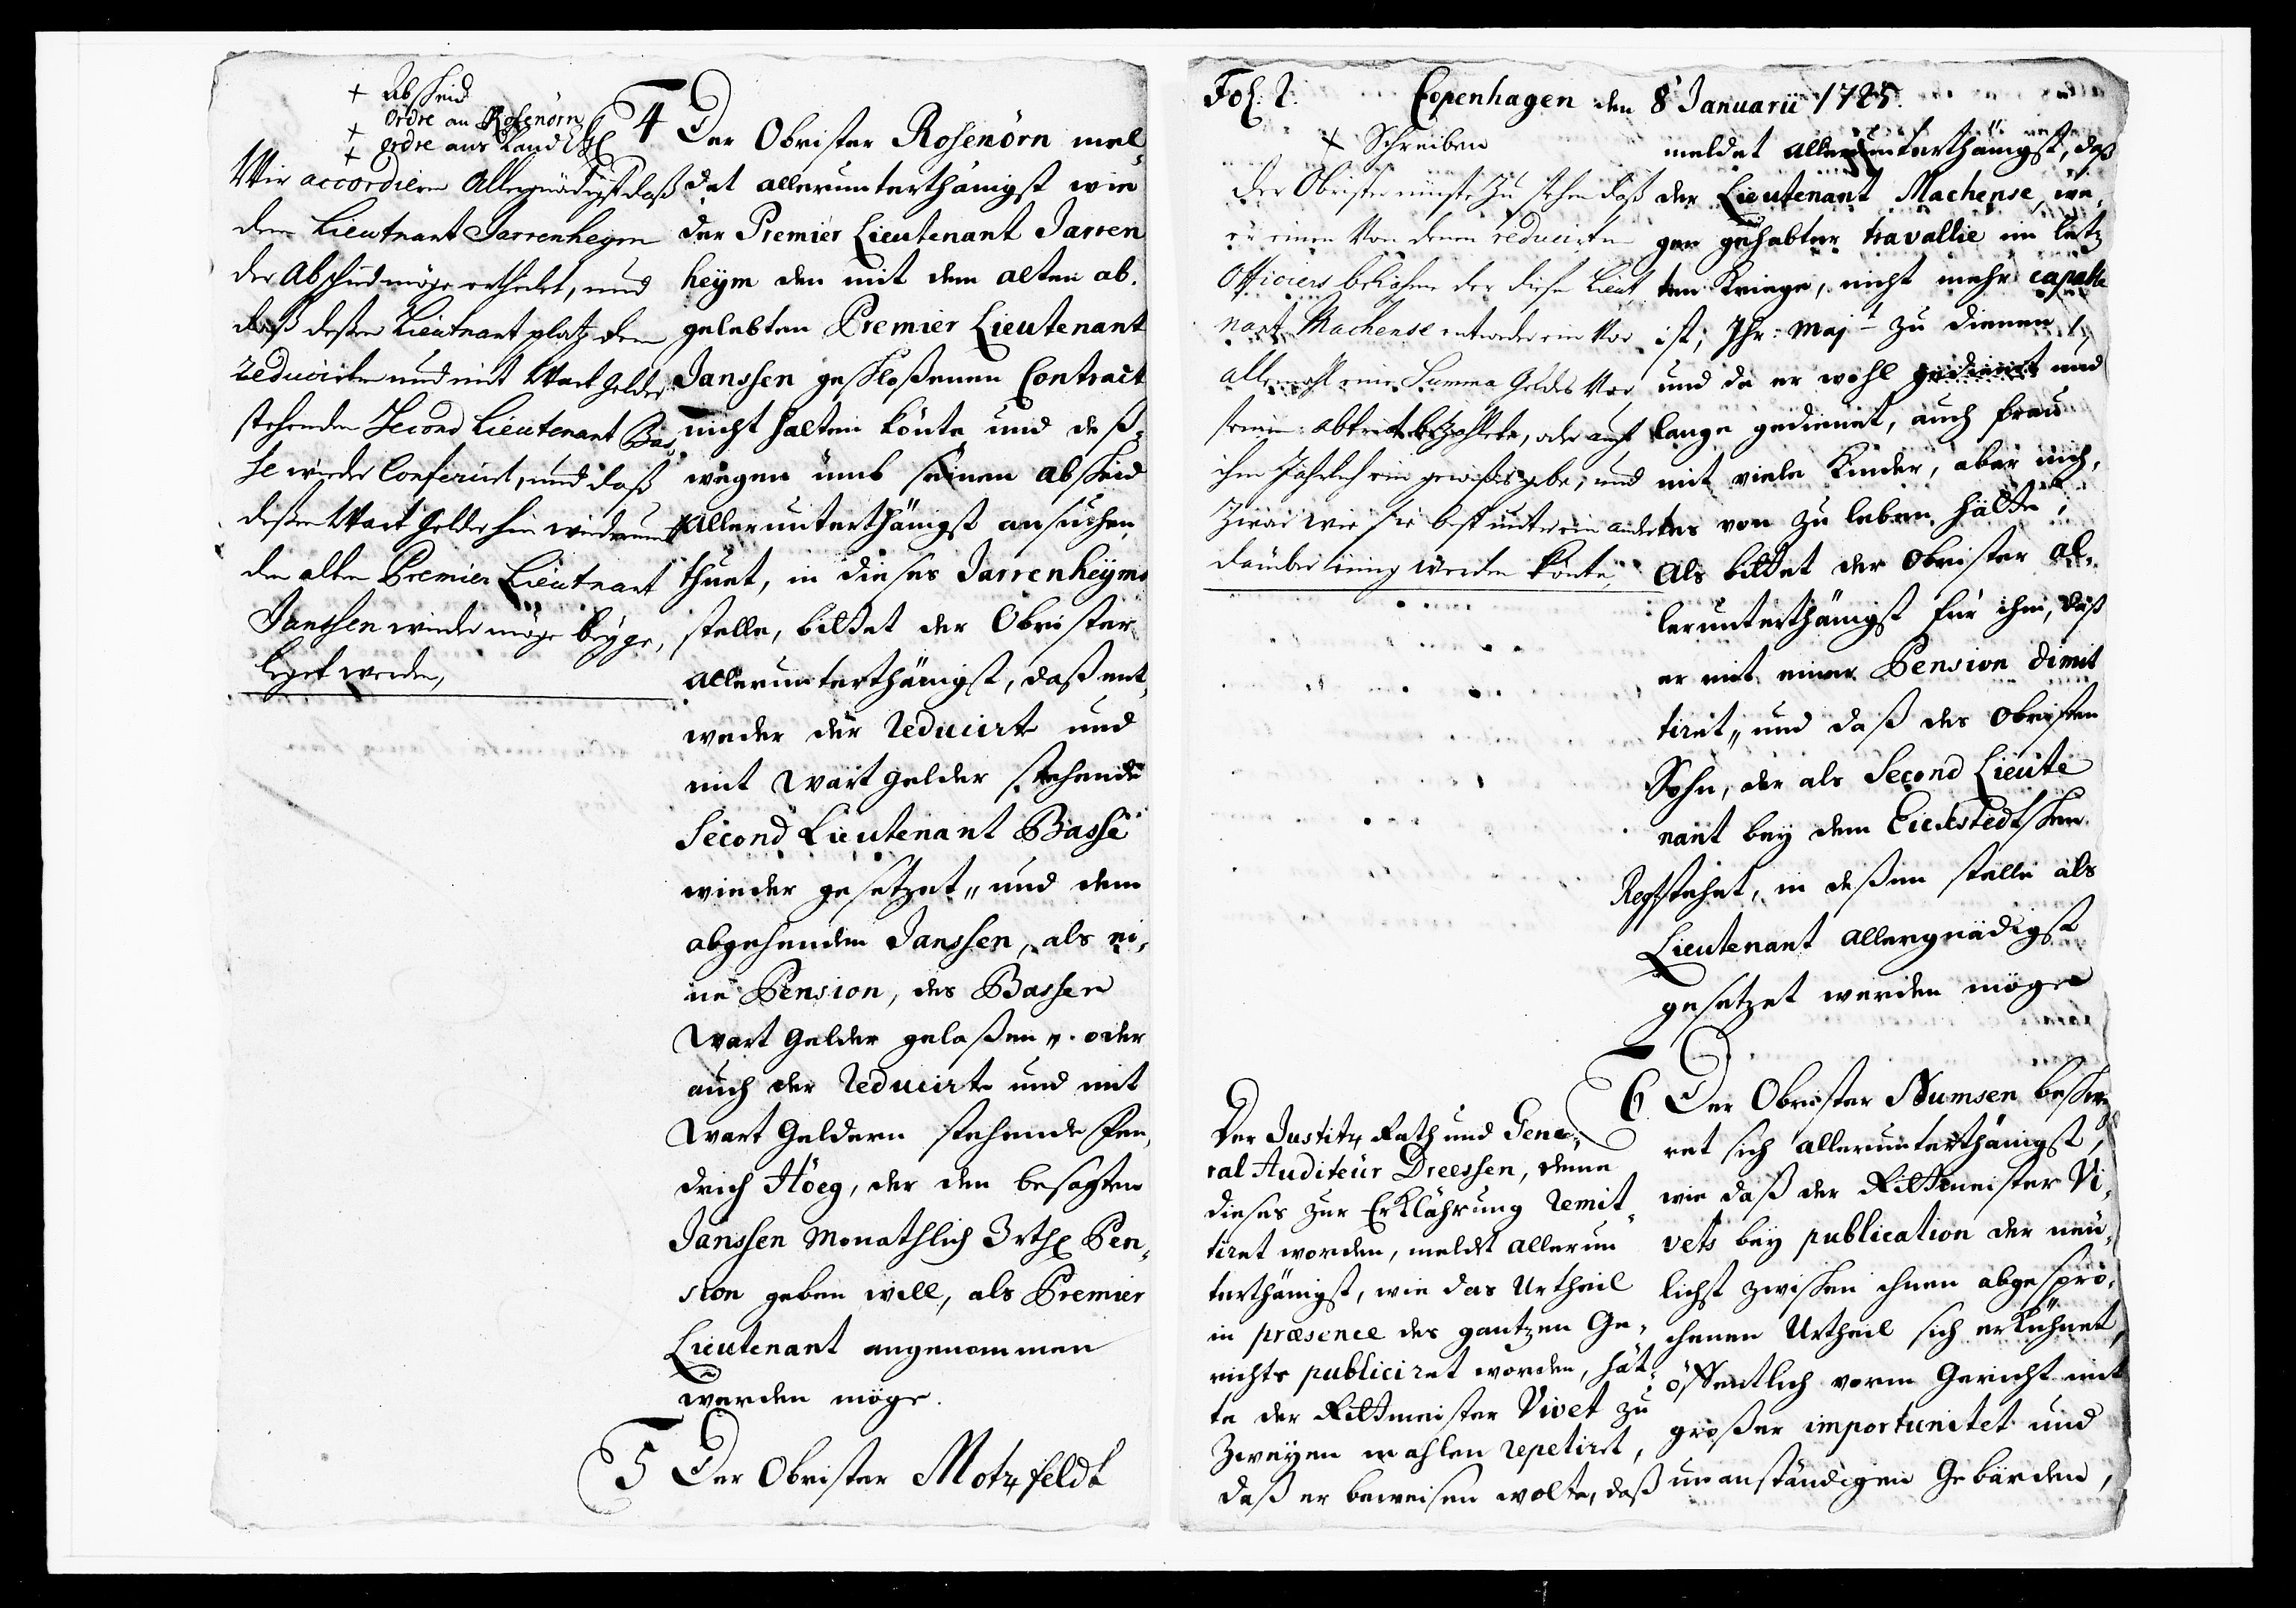 + Abscheid
+ Ordre an Rosenörn
+ Ordre ans Land
Wir accordiren Allergnädigst daß
dem Lieutnant Jarrenheym
der Abschied möge ertheilet, und
daß deßen Lieutnant platz dem
reducirten und mit Wart Gelder
stehenden Second Lieutenant Bas,
se wieder Conferiret, und daß
deßen Wart Gelder hin wiederumb
dem alten Premier Lieutnant
Janssen wieder möge beyge,
leget werden,
4 Der Obrister Rosenörn mel,
det allerunterthänigst wie
der Premier Lieutenant Jarren
heym den mit dem alten ab,
gelebten Premier Lieutenant
Janssen geschloßenen Contract
nicht halten könte und deß,
wegen umb seinen abscheid
allerunterthänigst ansuchen
thuet, in dieses Jarrenheyms
stelle, bittet der Obrister
allerunterthänigst, daß ent,
weder der reducirte und
mit Wart gelder stehende
Second Lieutenant Basse
wieder gesetzet, und dem
abgehenden Janssen, als ei,
ne Pension, des Bassen
Wart Gelder gelaßen, oder
auch der reducirte und mit
Wart Geldern stehende Fen,
drich Höeg, der den besagten
Janssen Monathlich 3 rth Pen,
sion geben will, als Premier
Lieutenant angenommen
werden möge.
5 Der Obrister Motzfeldt
Fol. 2. Copenhagen den 8 Januarii 1725.
+ Schreiben
Der Obrister müste zu sehen daß
er einen Von denen reducirten
Officiers bekähme der diesen Lieut,
nant Machense entweder ein Vor
allemahl eine Summa Geldes Vor
seinen abtrit bezahlete, oder auch
ihm Jahrlich ein gewißes gebe, und
zwar wie sie best unter ein ander
darüber einig werden könte,
meldet allerunterthänigst, daß
der Lieutenant Machense, we,
gen gehabter travallie im letz
ten Kriege, nicht mehr capable
ist, Ihr: Majt zu dienen,
und da er wohl gedienet und
lange gedienet, auch frau
mit viele Kinder, aber nich,
tes von zu leben hätte,
Als bittet der Obrister al,
lerunterthänigst für ihm, daß
er mit einer Pension dimit
tiret, und daß des Obristen
Sohn, der als Second Lieute
nant bey dem Eickstedtschen
Regt stehet, in deßen stelle als
Lieutenant allergnädigst
gesetzet werden möge
Der Justitz Rath und Gene,
ral Auditeur Dreessen, deme
dieses zur Erklährung remit,
tiret worden, meldet allerun
terthänigst, wie das Urtheil
in præsence des gantzen Ge,
richts publiciret worden, hät,
te der Rittmeister Vivet zu
Zweyen mahlen repetiret,
daß er beweisen wolte, daß
6 Der Obrister Numsen beschwe
ret sich allerunterthänigst,
wie daß der Rittmeister Vi,
vets bey publication der neu,
lichst zwischen ihnen abgespro,
chenen Urtheil sich erkühnet,
öffentlich vorm Gericht mit
großer importunitet und
unanständigen Gebärden,